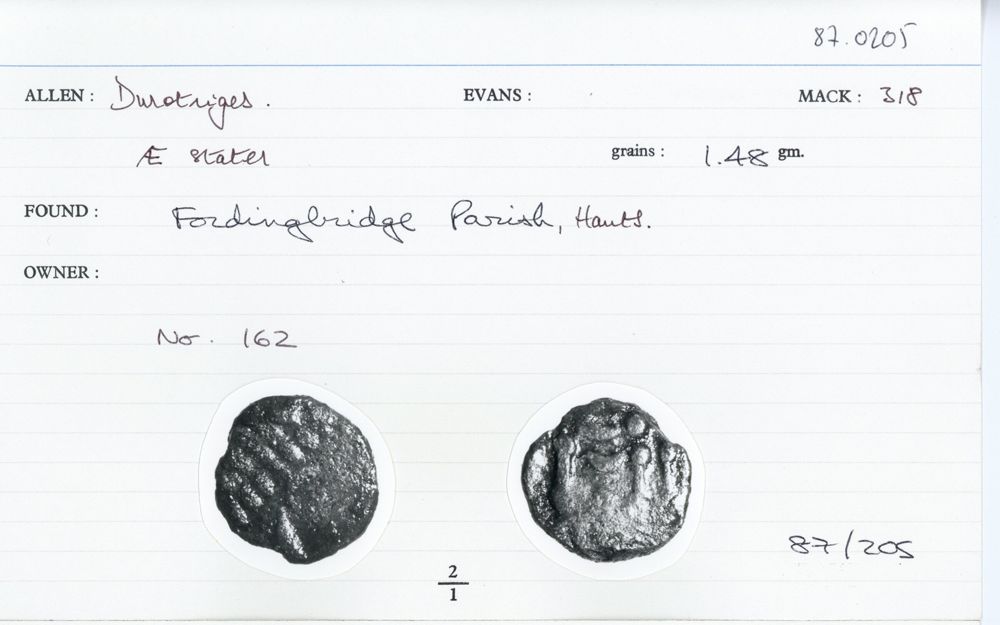 87.0205
ALLEN : Durotriges. EVANS : MACK : 318
Æ stater grains : 1.48 gm.
FOUND : Fordingbridge Parish, Hants.
OWNER :
No. 162
87/205
2
1